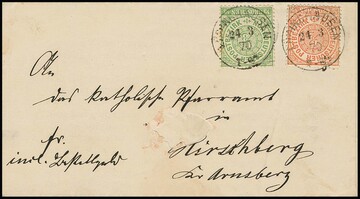 24 3
70
24 3
70
An
das katholische Pfarramt
in
fr.
incl. Bestellgeld
Hirschberg
Kr Arnsberg